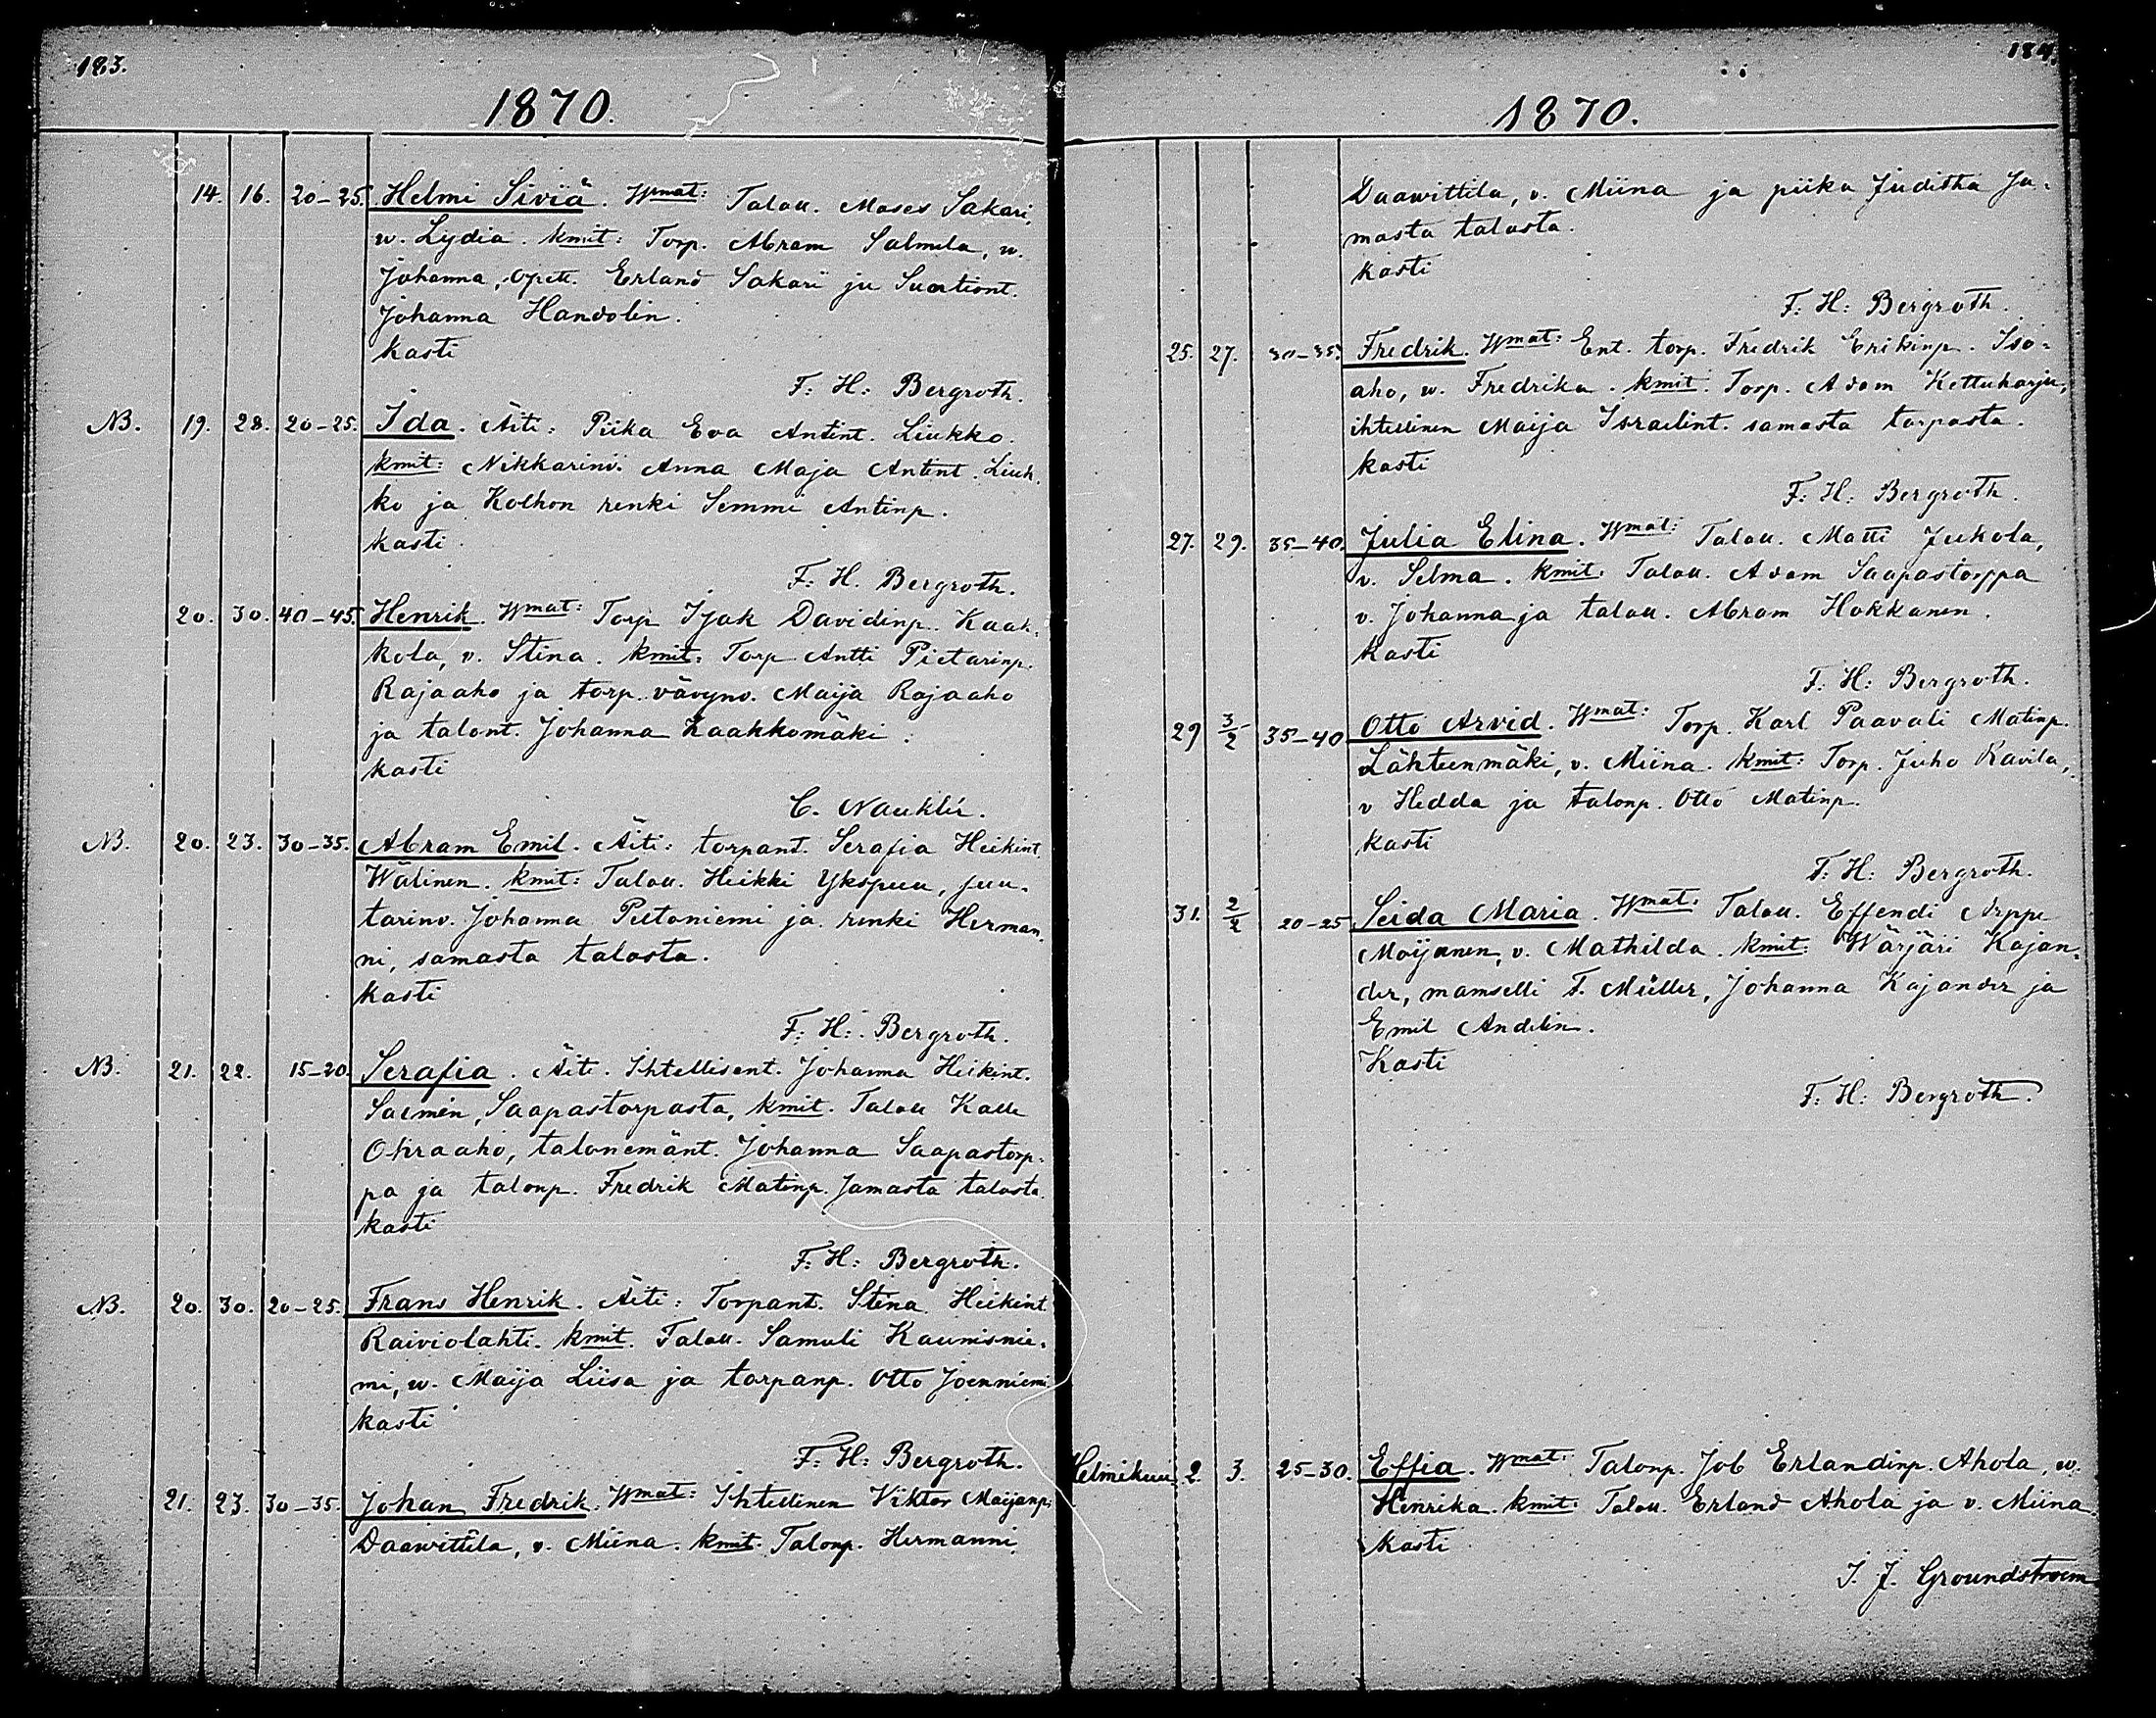 183.
1870.
14. 16. 20-25. Helmi Siviä. Wmat: Talou. Moses Sakari,
w. Lydia. kmit: Torp. Abram Salmela, w.
Johanna, Opett. Erland Sakari ja Suntiont.
Johanna Handolin.
kasti
F. H: Bergroth.
NB. 19. 28. 20-25. Ida. Äiti: Piika Eva Antint. Liukko.
kmit: Nikkarinv. Anna Maja Antint. Liuk.
ko ja Kolhon renki Semmi Antinp.
kasti
F. H. Bergroth.
20. 30. 40-45. Henrik. Wmat: Torp Isak Davidinp. Kaak.
kola, v. Stina. kmit: Torp Antti Pietarinp.
Rajaaho ja torp. vävynv. Maija Rajaaho
ja talont. Johanna Kaakkomäki.
kasti
C. Nauklér.
NB. 20. 23. 30-35. Abram Emil. Äiti: torpant. Serafia Heikint.
Wälinen. kmit: Talou. Heikki Ykspuu, suu-
tarinv. Johanna Peltoniemi ja renki Herman.
ni, samasta talosta.
kasti
F. H: Bergroth.
NB. 21. 22. 15-20. Serafia. Äiti. Ihtellisent. Johanna Heikint.
Saapastorpasta, kmit. Talou Kalle
Ohraaho, talonemänt. Johanna Saapastorp-
pa ja talonp. Fredrik Matinp. samasta talosta.
kasti
F. H: Bergroth.
NB. 20. 30. 20-25. Frans Henrik. Äiti: Torpant. Stina Heikint.
Raiviolahti. kmit. Talou. Samuli Kaunisnie-
mi, w. Maija Liisa ja torpanp. Otto Joenniemi
kasti
F. H: Bergroth.
21. 23. 30-35. Johan Fredrik. Wmat: Ihtellinen Viktor Maijanp.
Daawittila, v. Miina. kmit. Talonp. Hermanni
184.
1870.
Daawittila, v. Miina ja piika Juditha sa-
masta talosta.
kasti
F. H: Bergroth.
25. 27. 30-35. Fredrik. Wmat: Ent. torp. Fredrik Erikinp. Iso-
aho, w. Fredrika. kmit. Torp. Adam Kettuharju,
ihtellinen Maija Israelint. samasta torpasta.
kasti
F. H: Bergroth.
27. 29. 35-40. Julia Elina. Wmat: Talou. Matti Jukola,
v. Selma. kmit: Talou. Adam Saapastorppa
v. Johanna ja talou. Abram Hokkanen.
kasti
F. H: Bergroth.
29 3/2 35-40 Otto Arvid. Wmat: Torp. Karl Paavali Matinp.
Lähteenmäki, v. Miina. kmit: Torp. Juho Ravila,
v Hedda ja talonp. Otto Matinp.
kasti
F. H: Bergroth.
31. 2/2 20-25 Seida Maria. Wmat: Talou. Effendi Arppe
Moijanen, v. Mathilda. kmit: Wärjäri Kajan-
der, mamselli F. Müller, Johanna Kajander ja
Emil Andelin.
Kasti
F. H: Bergroth.
Helmikuu 2. 3. 25-30. Effia. Wmat: Talonp. Job Erlandinp. Ahola, w.
Henrika. kmit: Talou. Erland Ahola ja v. Miina
kasti
I. J. Groundstroem